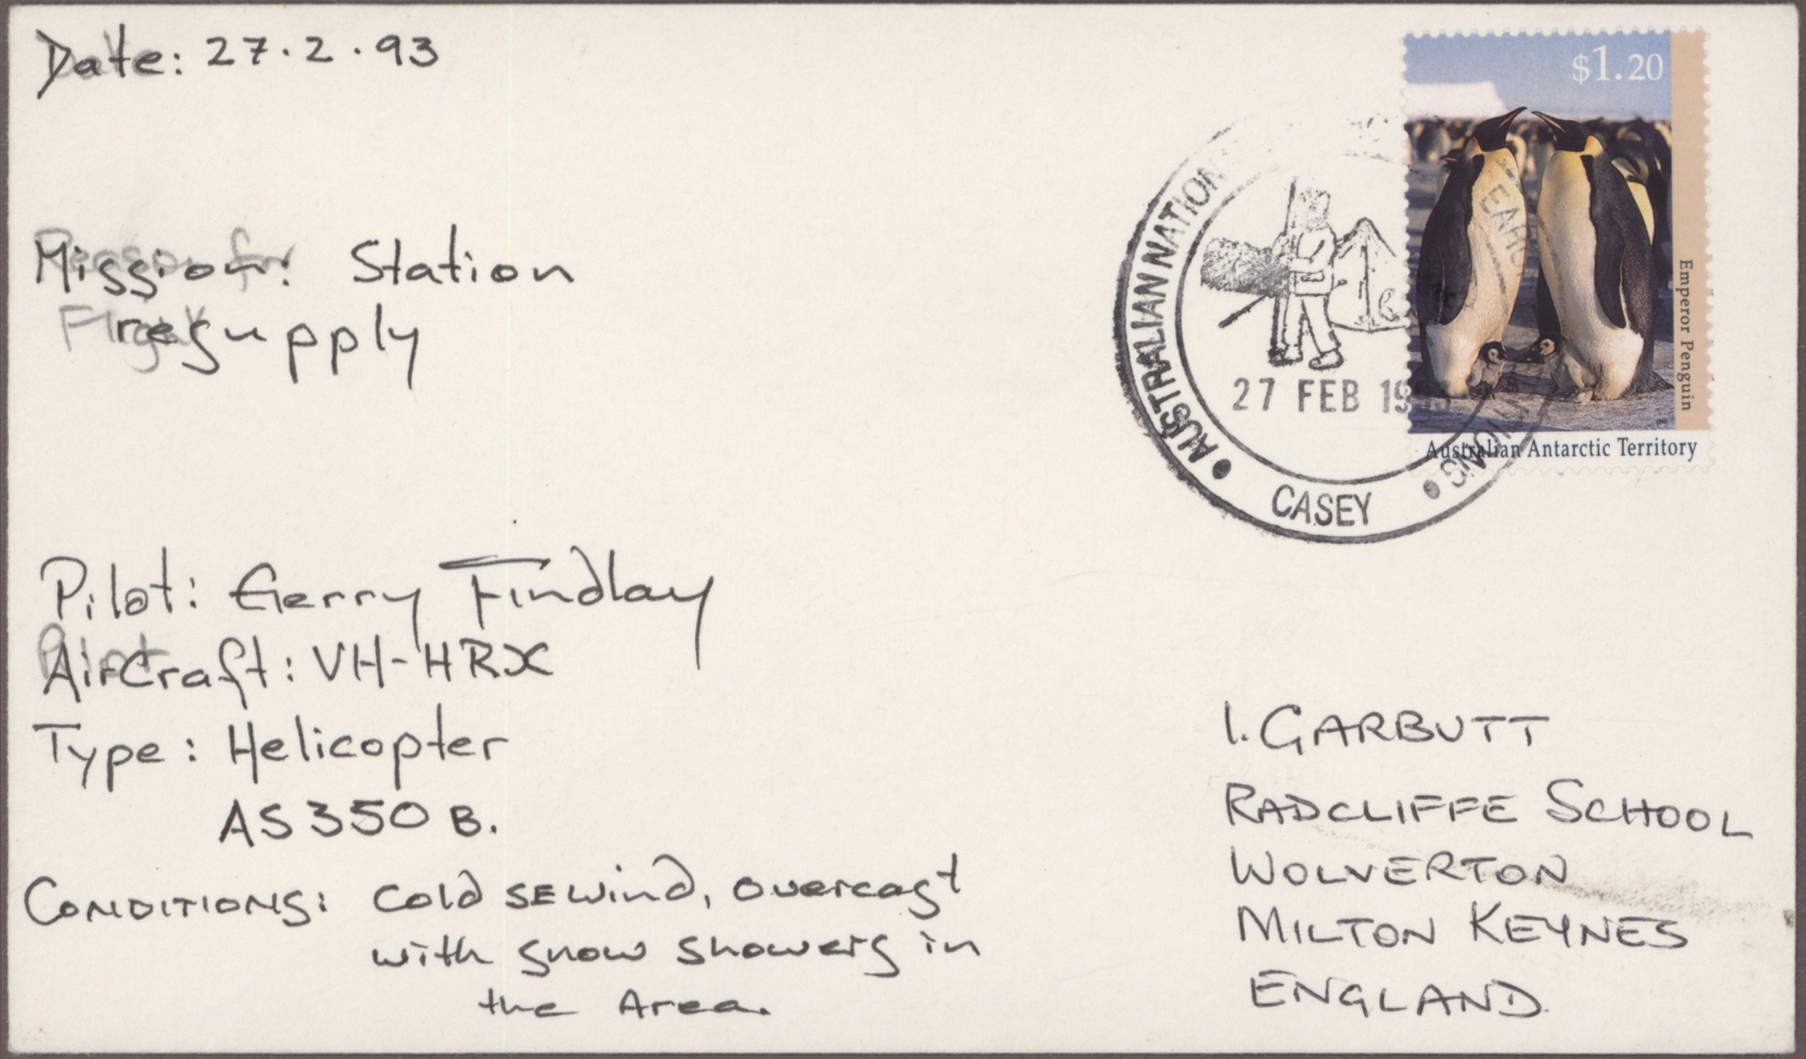 Date: 27.2.93
Mission: Station
resupply
Pilot: Gerry Findlay
AirCraft: VH-HRX
Type: Helicopter
AS350B.
CONDITIONS: Cold SE wind, overcast
with snow showers in
the Area.
$1.20
Emperor Penguin
Australian Antarctic Territory
AUSTRALIAN NATION
27 FEB 19
CASEY
I. GARBUTT
RADCLIFFE SCHOOL
WOLVERTON
MILTON KEYNES
ENGLAND